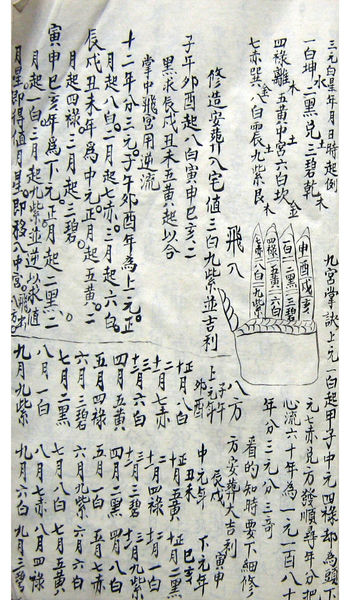 九宮掌訣上元一白起甲子中元四祿却為頭下
元七赤兒方發順尋年分把
心流六十年為一元一百八十
年分三元分三哥
看的知時要下細修
方安葬大吉利
三元白星年月日時起例
一白坤二黑兌三碧乾
四祿離五黃中宮六白坎
七赤巽八白震九紫艮
水
木
土
木
金
土
木
金
申酉戌亥
一白二黑三碧
四祿五黃六白
七赤八白九紫
飛八
八方
修造安葬入宅值三白九紫並吉利
子午卯酉起八白寅申巳亥二
黑求辰戌丑未五黃起以合
掌中飛宮用逆流
十二年分三元子午卯酉年為上元正
月起八白二月起七赤三月起六白
辰戌丑未年為中元正月起五黃二
月起四祿三月起二碧
寅申巳亥年為下元正月起二黑二
月起一白三月起九紫並逆以求值
月星即得值月星即移入中宮飛布
上元年
子午
卯酉
正月八白
二月七赤
三月六白
四月五黃
五月四祿
六月三碧
七月二黑
八月一白
九月九紫
中元年
辰戌
丑未
正月五黃
二月四祿
三月三碧
四月二黑
五月一白
六月九紫
七月八白
八月七赤
九月六白
下元年
寅申
巳亥
正月二黑
二月一白
三月九紫
四月八白
五月七赤
六月六白
七月五黃
八月四祿
九月三碧